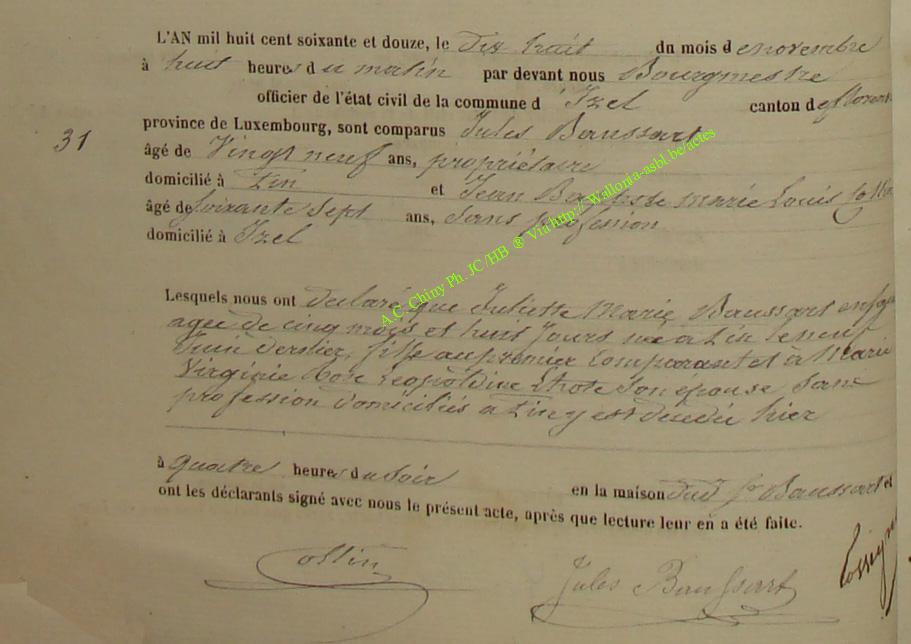 L'AN mil huit cent soixante et douze, le dix huit du mois de novembre
à huit heures du matin par devant nous Bourgmestre
officier de l'état civil de la commune d'Izel canton de floren
31
province de Luxembourg, sont comparus Jules Baussart
âgé de Vingt neuf ans, propriétaire
domicilié à et Jean marie Louis
âgé de soixante sept ans, sans profession
domicilié à Izel
A.C. Chiny Ph. JC /HB ® Via http://Wallonia-asbl.be/actes
Lesquels nous ont declaré que Juliette Marie Baussart
agee de cinq mois et huit jours nee a le neuf
Juin dernier, fille au premier comparant et à Marie
Virginie Rose Leopoldine son epouse sans
profession domiciliés a y est decedée hier
à quatre heures du soir en la maison dud Sr Baussart et
ont les déclarants signé avec nous le présent acte, après que lecture leur en a été faite.
Collin Jules Baussart